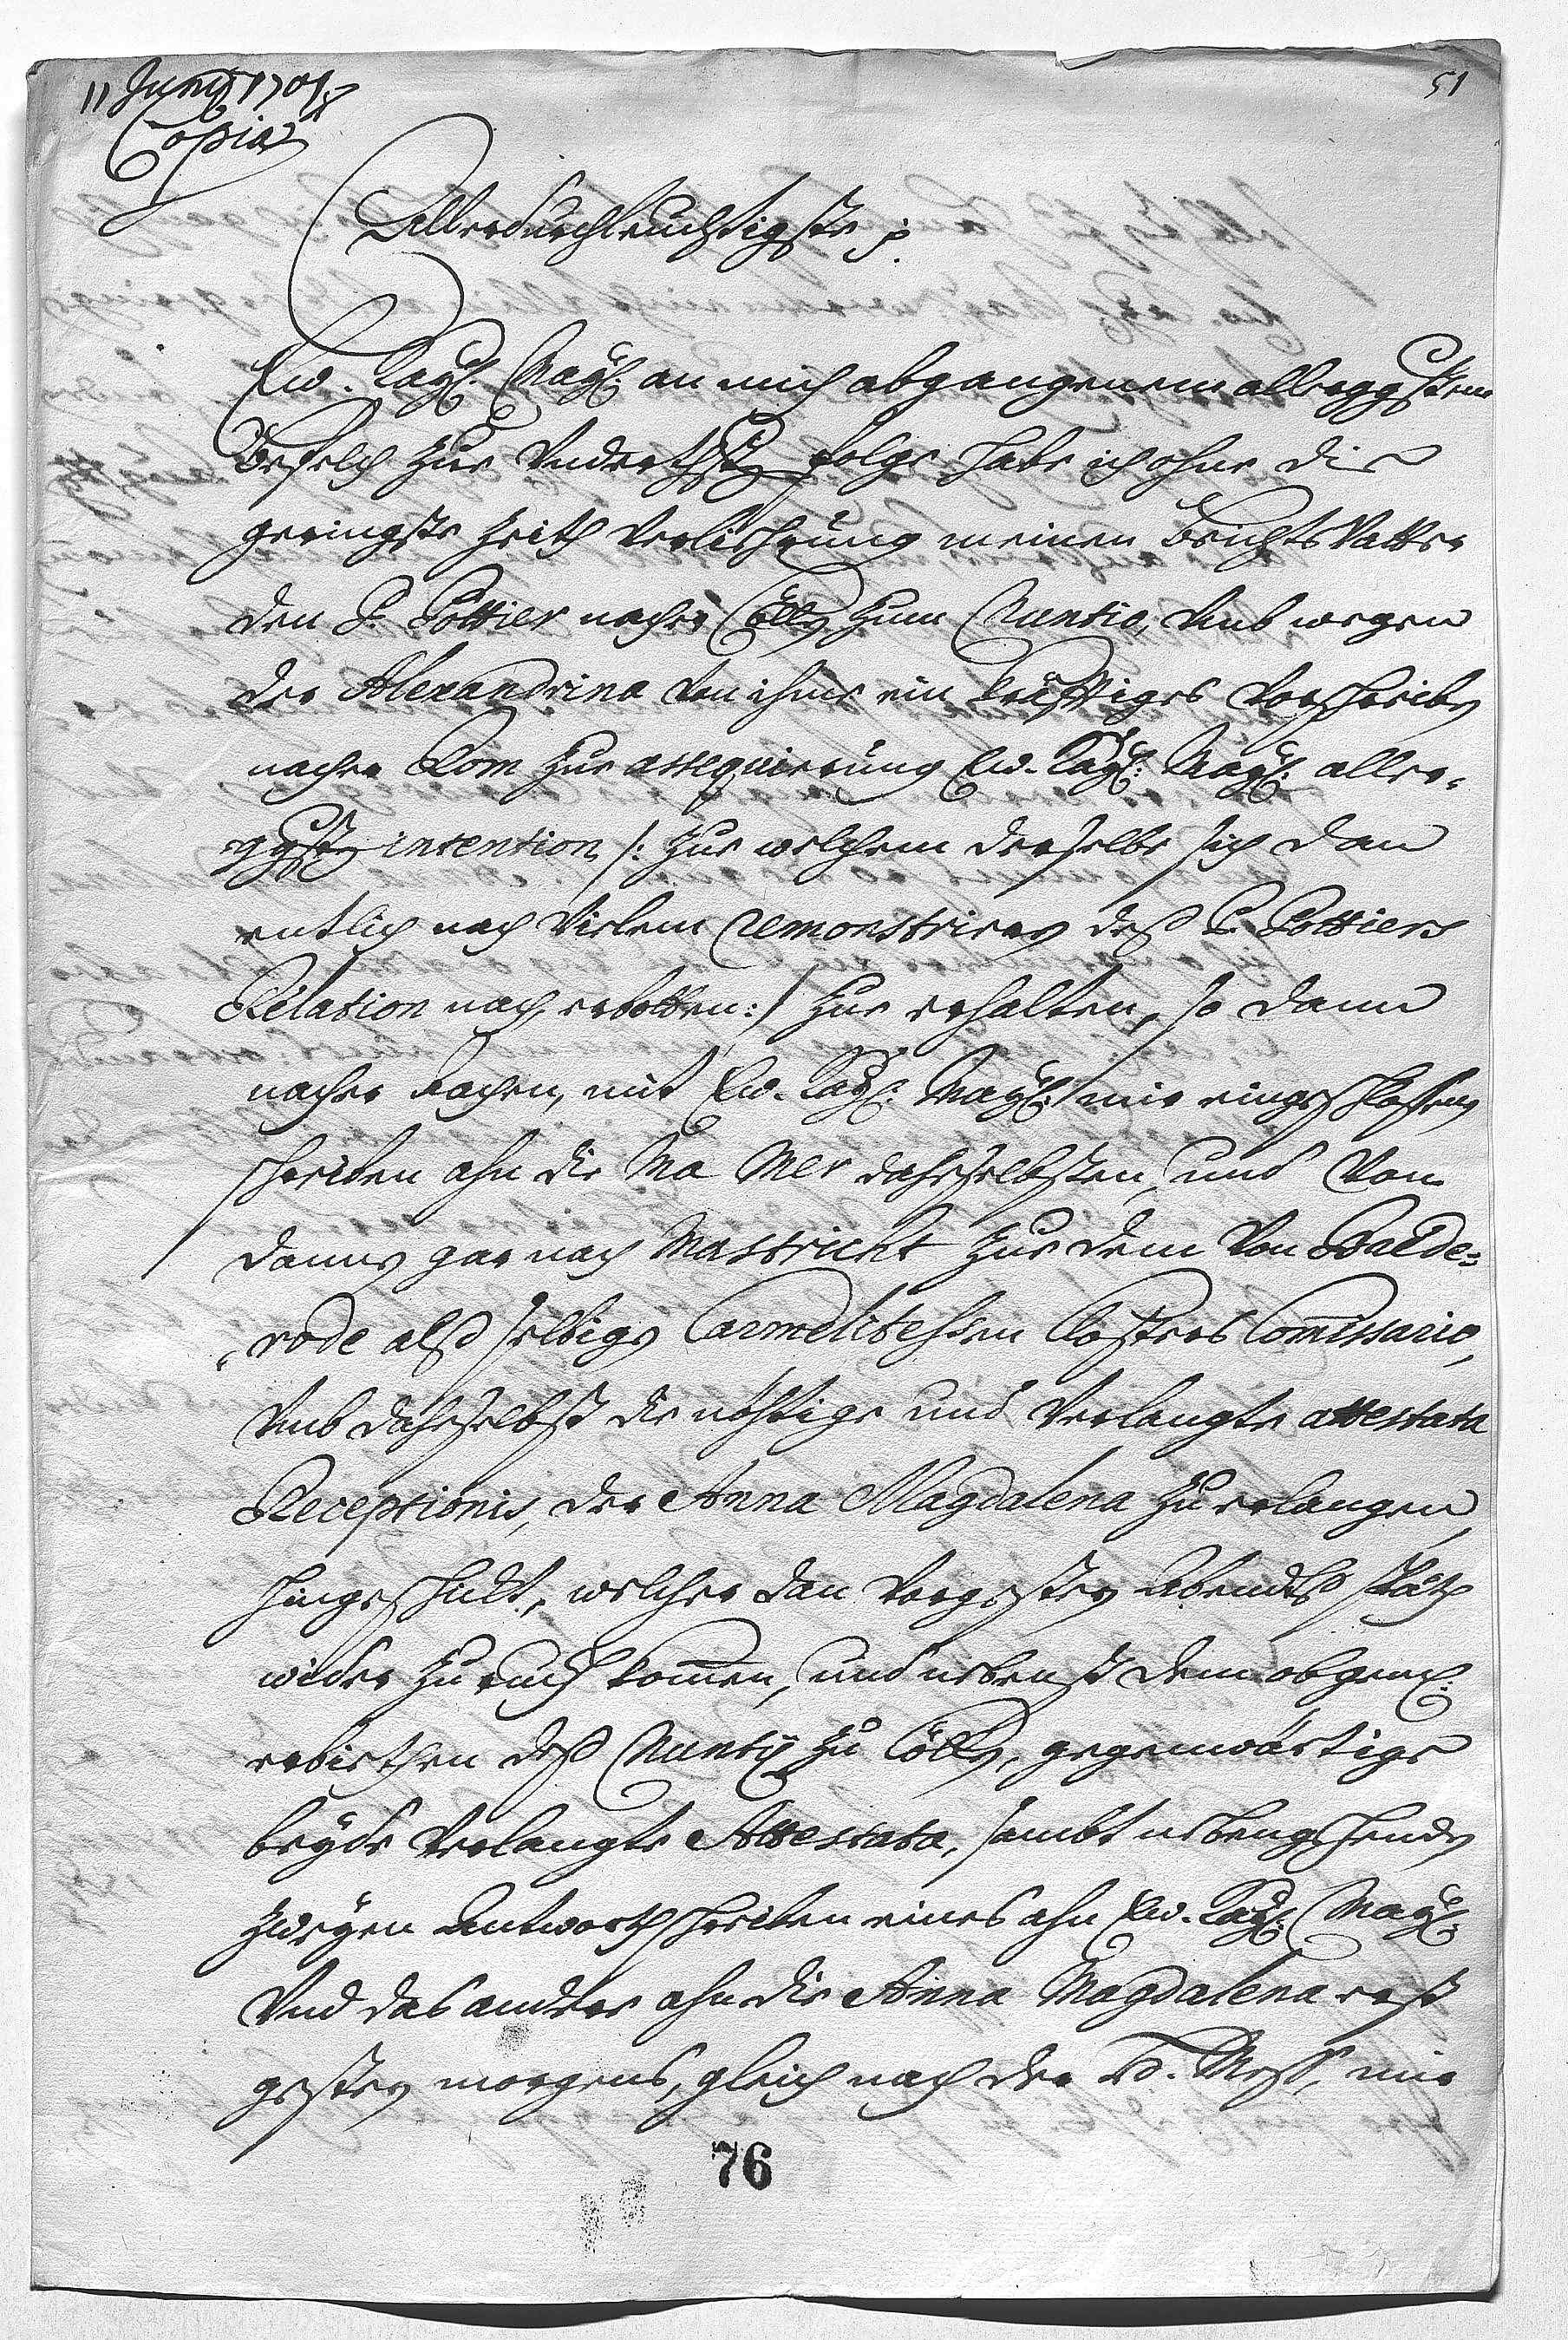 11 Junÿ 1701
51
Copia
Allerdurchleuchtigste p.
Ew. Kaÿl. Maÿl. an mich abgangenem allerggstem
Befelch zur Underthstn folge habe ich ohne die
geringste Zeith Verliehrung meinen Beichts Vatter
den P. Pottier nacher Cölln zum Nuntio, Umb wegen
der Alexandrina von ihme ein kräfftiges Vorschreiben
nacher Rom zur assequierung Ew. Kaÿl: Maÿl: aller-
ggstn intention /: zur welchem derselbe sich dan
entlich nach Vielem remonstriren deß P. Pottiers
Relation nach erbotten :/ zur erhalten, so dann
nacher Aachen, mit Ew. Kaÿl: Maÿl: mir eingeschlossenen
schreiben ahn die Ma Mer dahselbsten, und Von
dannen gar nach Mastricht zur dem Von Baede=
rode alß selbigen Carmelitessen Closters Comissario,
Umb dahselbst die nöhtige und Verlangte attestata
Receptionis, der Anna Magdalena zu erlangen,
hingeschickt, welcher dan Vorgestern Abendts späth
wider zuruckh komen, und nebenst dem obgeml:
erbiethen deß Nuntÿ zu Cölln, gegenwärtige
beÿde Verlangte Attestata, sambt nebengehenden
zweÿen Antworthschreiben eines ahn Ew. Kaÿl: Maÿl:
Und das andere ahn die Anna Magdalena erst
gestern morgens, gleich nach der H. Mess, mir
76